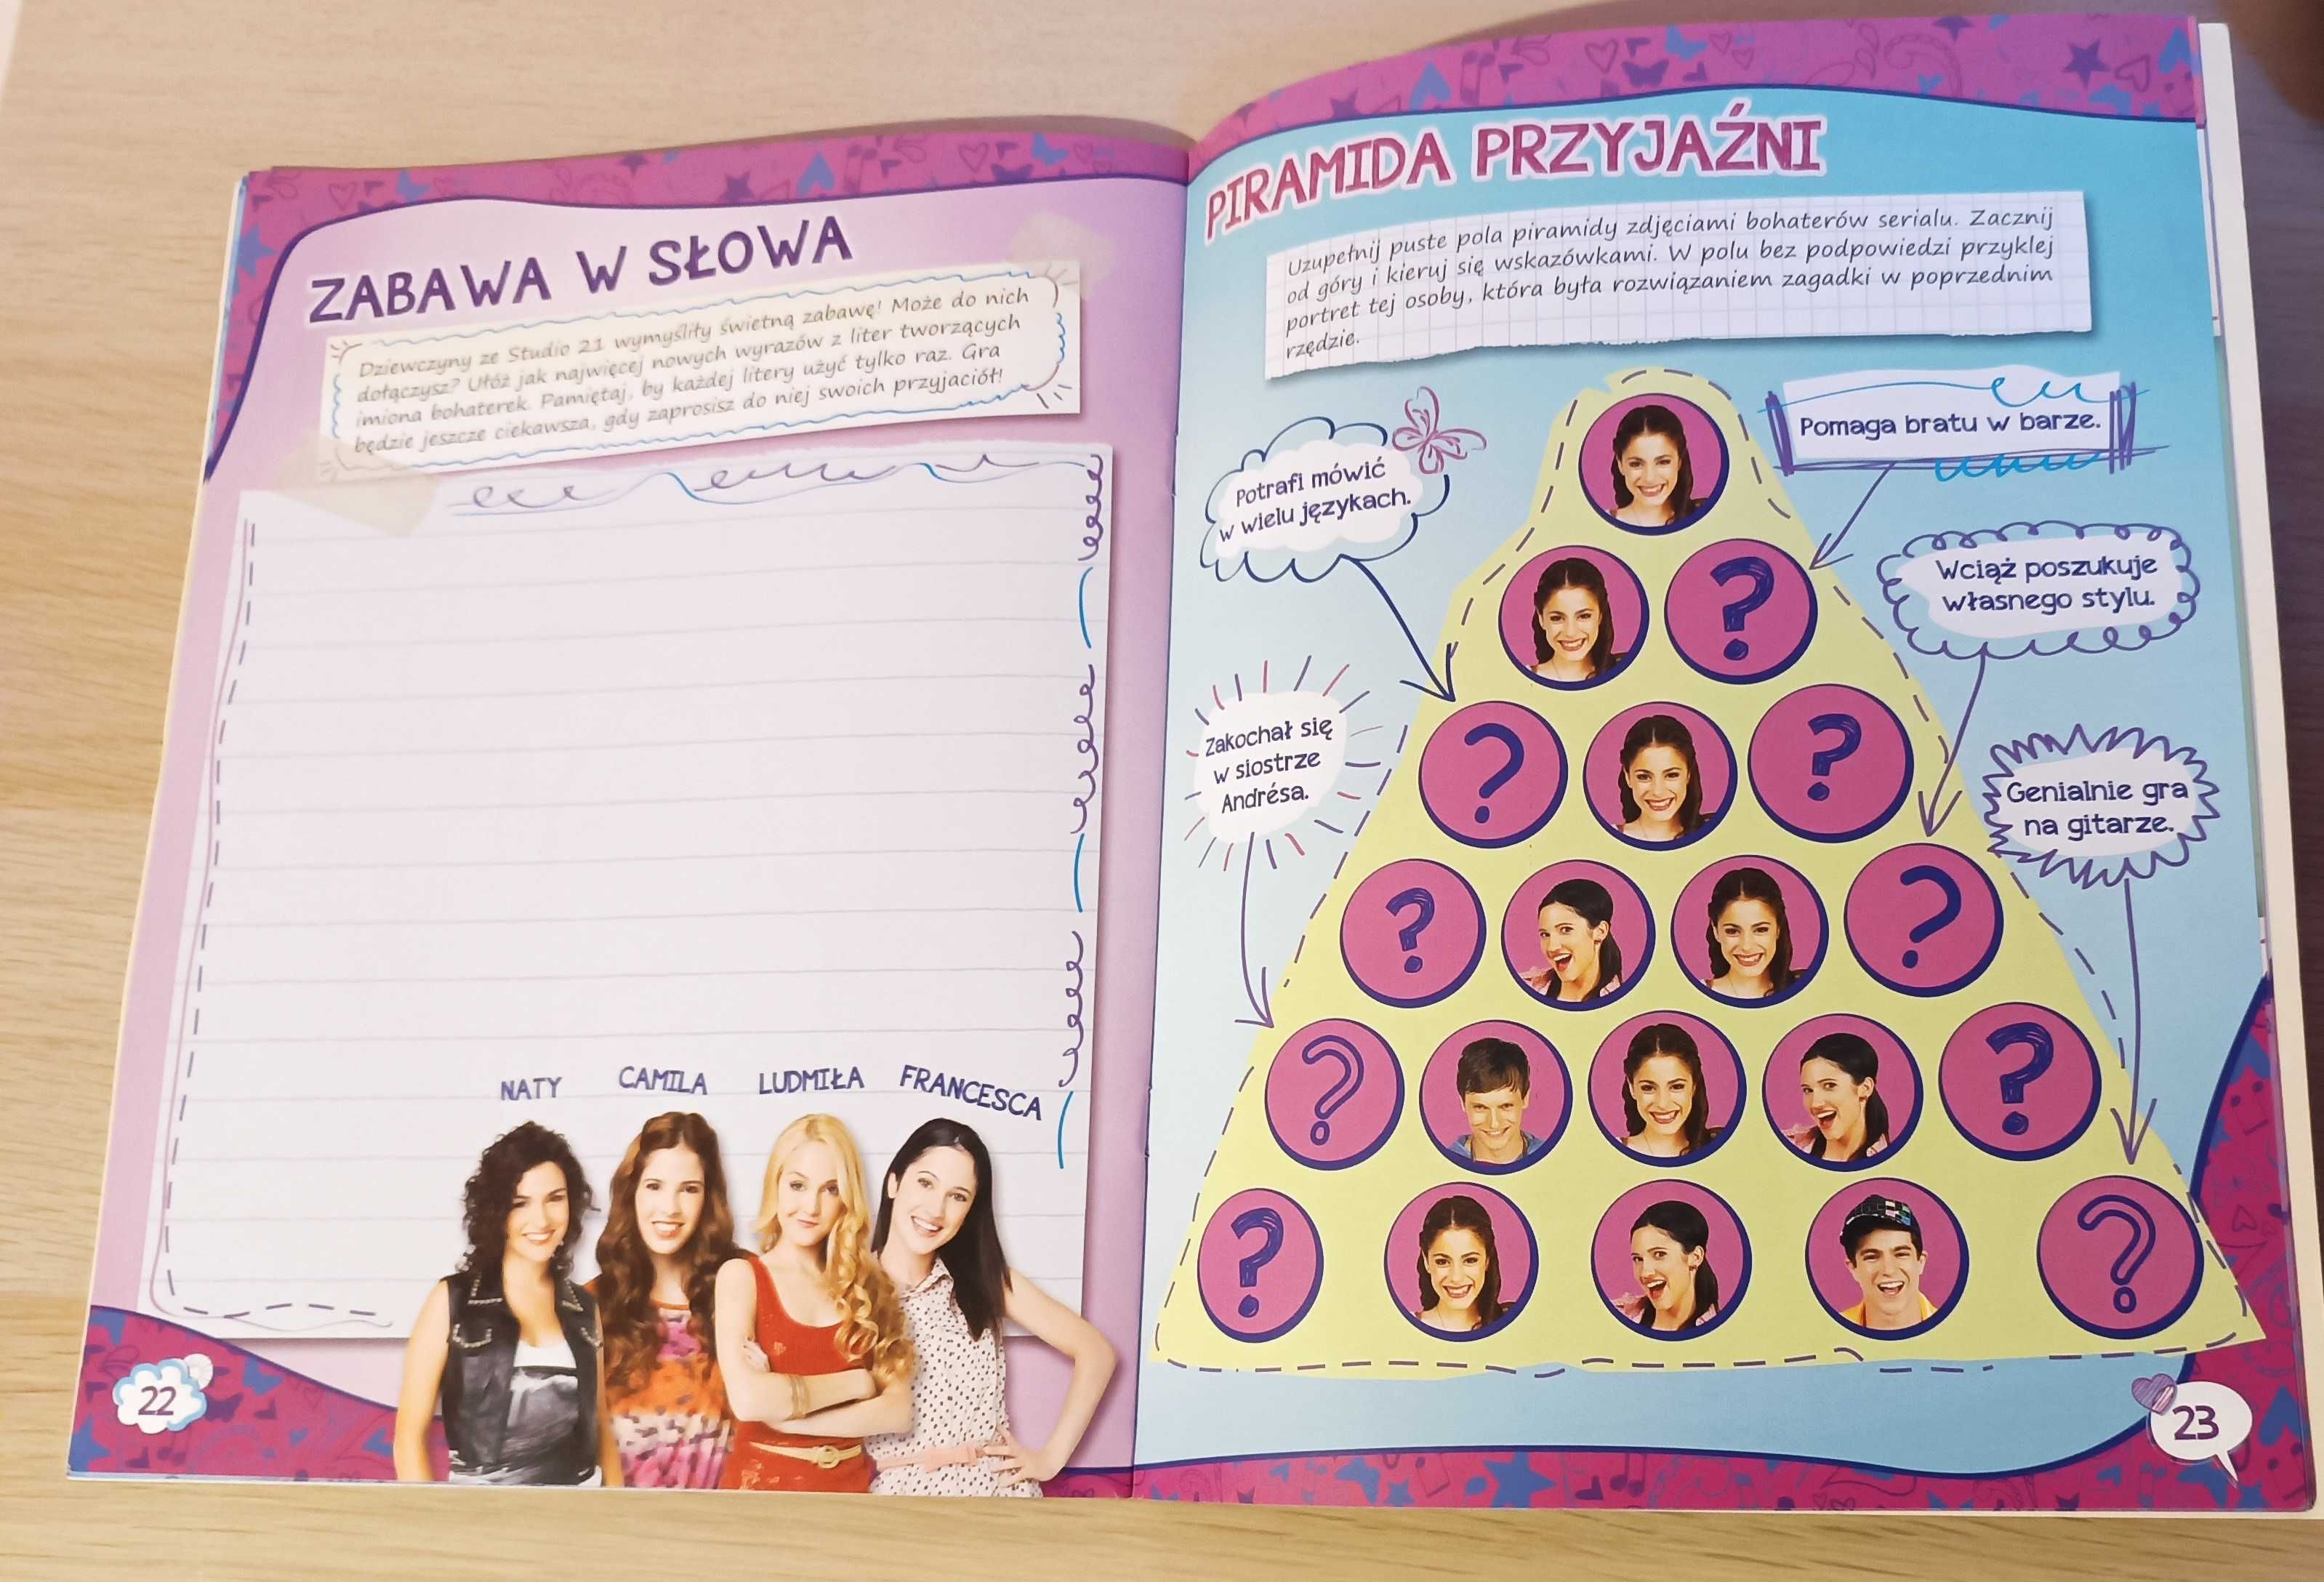 ZABAWA W SŁOWA
Dziewczyny ze Studio 21 wymyśliły świetną zabawę! Może do nich
dołączysz? Ułóż jak najwięcej nowych wyrazów z liter tworzących
imiona bohaterek. Pamiętaj, by każdej litery użyć tylko raz. Gra
będzie jeszcze ciekawsza, gdy zaprosisz do niej swoich przyjaciół!
NATY
CAMILA
LUDMIŁA
FRANCESCA
22
PIRAMIDA PRZYJAŹNI
Uzupełnij puste pola piramidy zdjęciami bohaterów serialu. Zacznij
od góry i kieruj się wskazówkami. W polu bez podpowiedzi przyklej
portret tej osoby, która była rozwiązaniem zagadki w poprzednim
rzędzie.
Pomaga bratu w barze.
Potrafi mówić
w wielu językach.
Wciąż poszukuje
własnego stylu.
Zakochał się
w siostrze
Andrésa.
Genialnie gra
na gitarze.
?
?
?
?
?
?
?
?
?
23